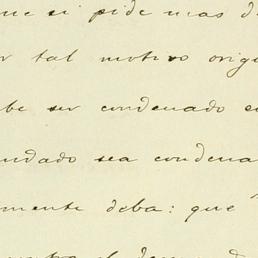 que si pide mas d
r tal motivo orig
be ser condenado e
undado sea condena
mente deba: que